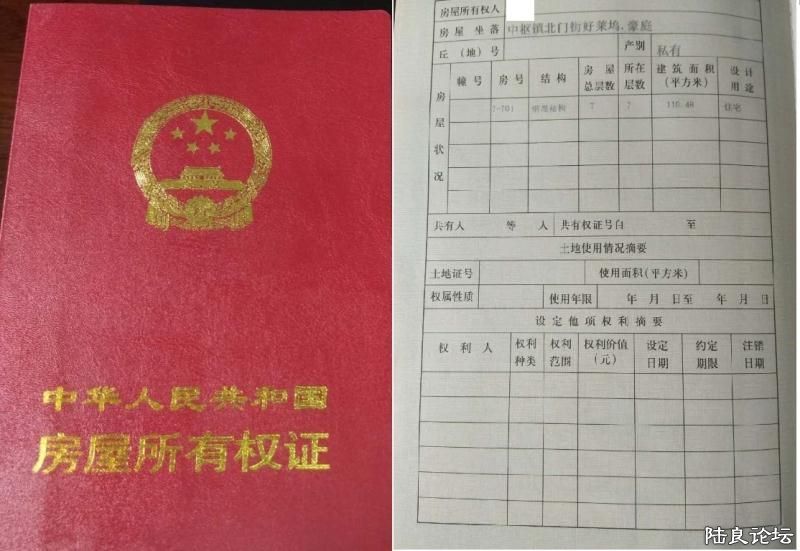 中华人民共和国
房屋所有权证
房屋所有权人
房屋坐落 中枢镇北门街好莱坞.豪庭
丘（地）号 产别 私有
房屋状况
幢号 房号 结构 房屋总层数 所在层数 建筑面积（平方米） 设计用途
7-701 钢混结构 7 7 110.48 住宅
共有人 等 人 共有权证号自 至
土地使用情况摘要
土地证号 使用面积（平方米）
权属性质 使用年限 年 月 日至 年 月 日
设定他项权利摘要
权利人 权利种类 权利范围 权利价值（元） 设定日期 约定期限 注销日期
陆良论坛